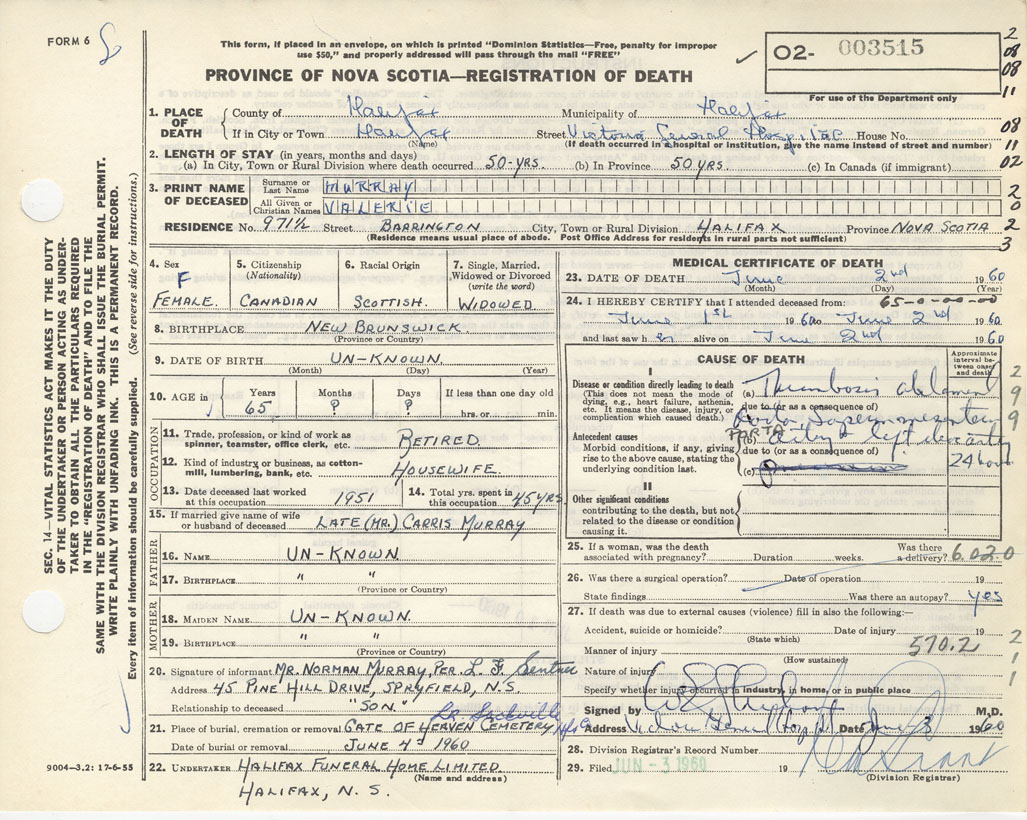 FORM 6
This form, if placed in an envelope, on which is printed "Dominion Statistics—Free, penalty for improper
use $50," and properly addressed will pass through the mail "FREE"
PROVINCE OF NOVA SCOTIA—REGISTRATION OF DEATH
O2- 003515
For use of the Department only
2
08
08
11
08
11
02
2
0
2
3
1. PLACE OF DEATH
County of Halifax Municipality of Halifax
If in City or Town Halifax Street Victoria General Hospital House No.
(Name) (If death occurred in a hospital or institution, give the name instead of street and number)
2. LENGTH OF STAY (in years, months and days)
(a) In City, Town or Rural Division where death occurred 50-YRS. (b) In Province 50 YRS. (c) In Canada (if immigrant)
3. PRINT NAME OF DECEASED
Surname or Last Name MURRAY
All Given or Christian Names VALERIE
RESIDENCE No. 971½ Street BARRINGTON City, Town or Rural Division HALIFAX Province NOVA SCOTIA
(Residence means usual place of abode. Post Office Address for residents in rural parts not sufficient)
SEC. 14—VITAL STATISTICS ACT MAKES IT THE DUTY
OF THE UNDERTAKER OR PERSON ACTING AS UNDER-
TAKER TO OBTAIN ALL THE PARTICULARS REQUIRED
IN THE "REGISTRATION OF DEATH" AND TO FILE THE
SAME WITH THE DIVISION REGISTRAR WHO SHALL ISSUE THE BURIAL PERMIT.
WRITE PLAINLY WITH UNFADING INK. THIS IS A PERMANENT RECORD.
Every item of information should be carefully supplied. (See reverse side for instructions.)
4. Sex
F
FEMALE.
5. Citizenship
(Nationality)
CANADIAN
6. Racial Origin
SCOTTISH.
7. Single, Married,
Widowed or Divorced
(write the word)
WIDOWED
8. BIRTHPLACE NEW BRUNSWICK.
(Province or Country)
9. DATE OF BIRTH UN-KNOWN.
(Month) (Day) (Year)
10. AGE in
Years Months Days If less than one day
65 ? ? hrs. or min.
OCCUPATION
11. Trade, profession, or kind of work as
spinner, teamster, office clerk, etc. RETIRED.
12. Kind of industry or business, as cotton-
mill, lumbering, bank, etc. HOUSEWIFE.
13. Date deceased last worked
at this occupation 1951
14. Total yrs. spent in
this occupation 45 YRS
15. If married give name of wife
or husband of deceased LATE (MR.) CARRIS MURRAY
FATHER
16. NAME UN-KNOWN
17. BIRTHPLACE " "
(Province or Country)
MOTHER
18. MAIDEN NAME UN-KNOWN.
19. BIRTHPLACE " "
(Province or Country)
20. Signature of informant MR. NORMAN MURRAY, PER. L. F.
Address 45 PINE HILL DRIVE, SPRYFIELD, N.S.
Relationship to deceased "SON."
Sackville
21. Place of burial, cremation or removal GATE OF HEAVEN CEMETERY
Date of burial or removal JUNE 4th 1960
22. UNDERTAKER HALIFAX FUNERAL HOME LIMITED.
(Name and address)
HALIFAX, N. S.
9004—3.2: 17-6-55
MEDICAL CERTIFICATE OF DEATH
23. DATE OF DEATH June 2nd 1960
(Month) (Day) (Year)
65-0-00-00
24. I HEREBY CERTIFY that I attended deceased from:
June 1st 1960 to June 2nd 1960
and last saw her alive on June 2nd 1960
CAUSE OF DEATH
Approximate
interval be-
tween onset
and death
I
Disease or condition directly leading to death
(This does not mean the mode of
dying, e.g., heart failure, asthenia,
etc. It means the disease, injury, or
complication which caused death.)
(a) Thrombosis abdominal
due to (or as a consequence of)
Aorta Superior mesenteric
AORTA
Antecedent causes
Morbid conditions, if any, giving
rise to the above cause, stating the
underlying condition last.
(b) artery & left
due to (or as a consequence of)
24 hours
(c)
II
Other significant conditions
contributing to the death, but not
related to the disease or condition
causing it.
2
9
9
9
25. If a woman, was the death
associated with pregnancy? Duration weeks. Was there
a delivery? 6.020
26. Was there a surgical operation? Date of operation 19
State findings Was there an autopsy? yes
27. If death was due to external causes (violence) fill in also the following:—
Accident, suicide or homicide? Date of injury 19
(State which)
Manner of injury 570.2
(How sustained)
Nature of injury
Specify whether injury occurred in industry, in home, or in public place
2
1
1
Signed by M.D.
Address Victoria General Hospital Date June 3 1960
28. Division Registrar's Record Number
29. Filed JUN - 3 1960 19
(Division Registrar)